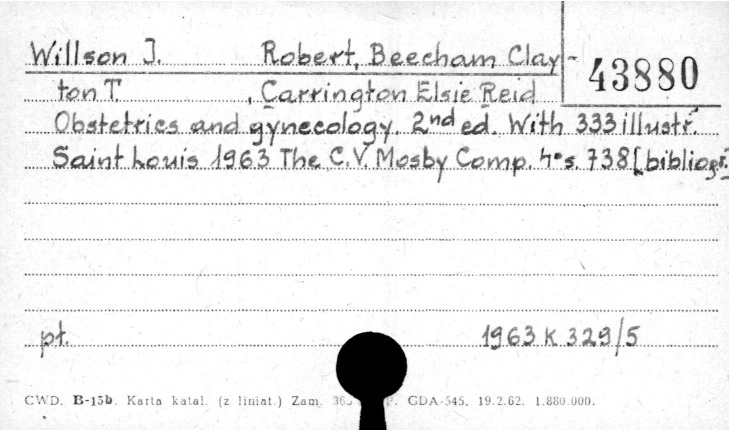 Willson J. Robert, Beecham Clay-
43880
ton T. , Carrington Elsie Reid
Obstetrics and gynecology. 2nd ed. With 333 illustr.
Saint Louis 1963 The C.V. Mosby Comp. 4° s. 738 [bibliogr.]
pł. 1963 K 329/5
CWD. B-15b. Karta katal. (z liniat.) Zam. P. GDA-545. 19.2.62. 1.880.000.